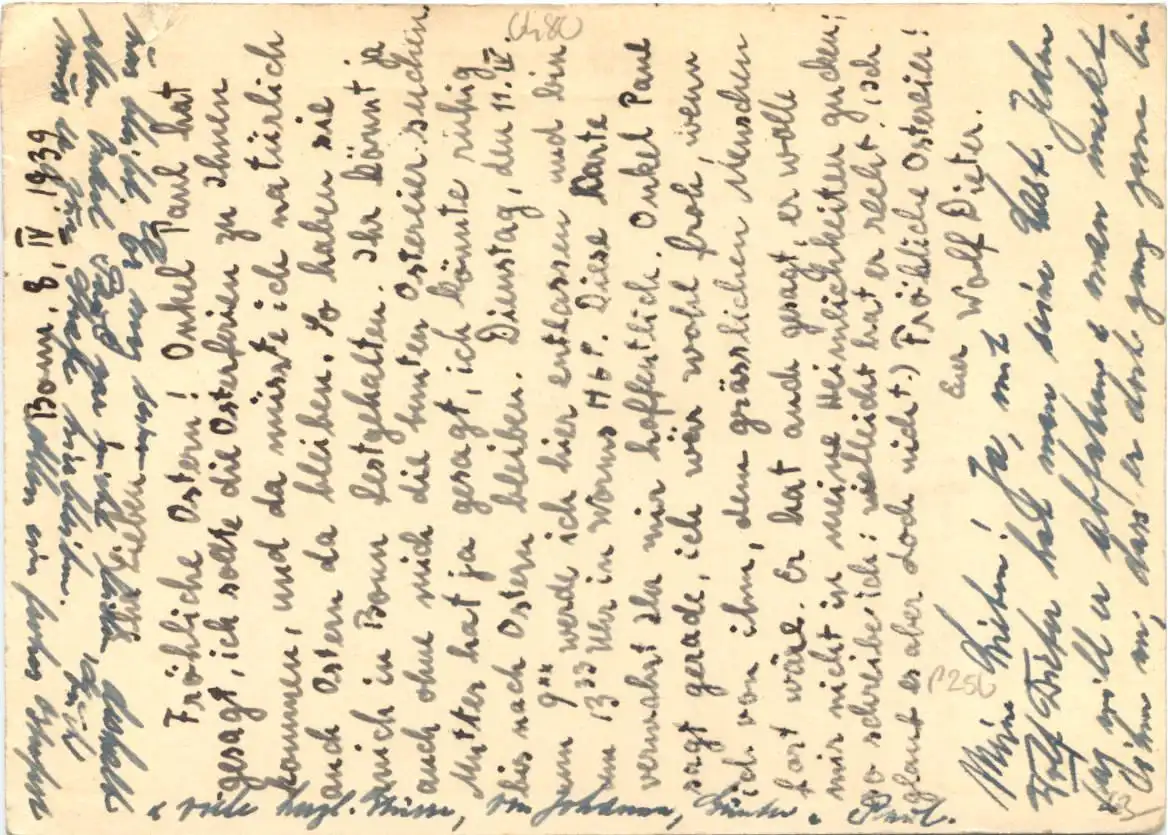 Bonn, 8. IV 1939
Lieben
Fröhliche Ostern! Onkel Paul hat
gesagt, ich sollte die Osterferien zu Ihnen
kommen, und da müsste ich natürlich
auch Ostern da bleiben. So haben sie
mich in Bonn festgehalten. Ihr könnt ja
auch ohne mich die bunten Ostereier suchen.
Mutter hat ja gesagt, ich könnte ruhig
bis nach Ostern bleiben. Dienstag, den 11. IV.
um 9 werde ich hier entlassen und bin
um 13 33 Uhr in Worms Hbf. Diese Karte
verwahrst du mir hoffentlich. Onkel Paul
sagt gerade, ich wär wohl froh, wenn
ich von ihm, dem grässlichen Menschen
fort wäre. Er hat auch gesagt, er wolle
mir nicht in meine Heimlichkeiten gucken;
so schreibe ich: vielleicht hat er recht. (Ich
glaub es aber doch nicht.) Fröhliche Ostereier!
Euer Wolf Dieter.
Meine Lieben! Ja, mit
Wolf Dieter hat man seine Last. Jeden
Tag will er abfahren & man merkt
es ihm an, dass er doch ganz gern bei
uns bleibt. Er mag den
alten Onkel Paul gar zu leiden, deshalb
muss Strafe hierbleiben.
Allen ein frohes Osterfest
& viele herzl. Grüsse, von Johanna, Günter & Paul.
P256